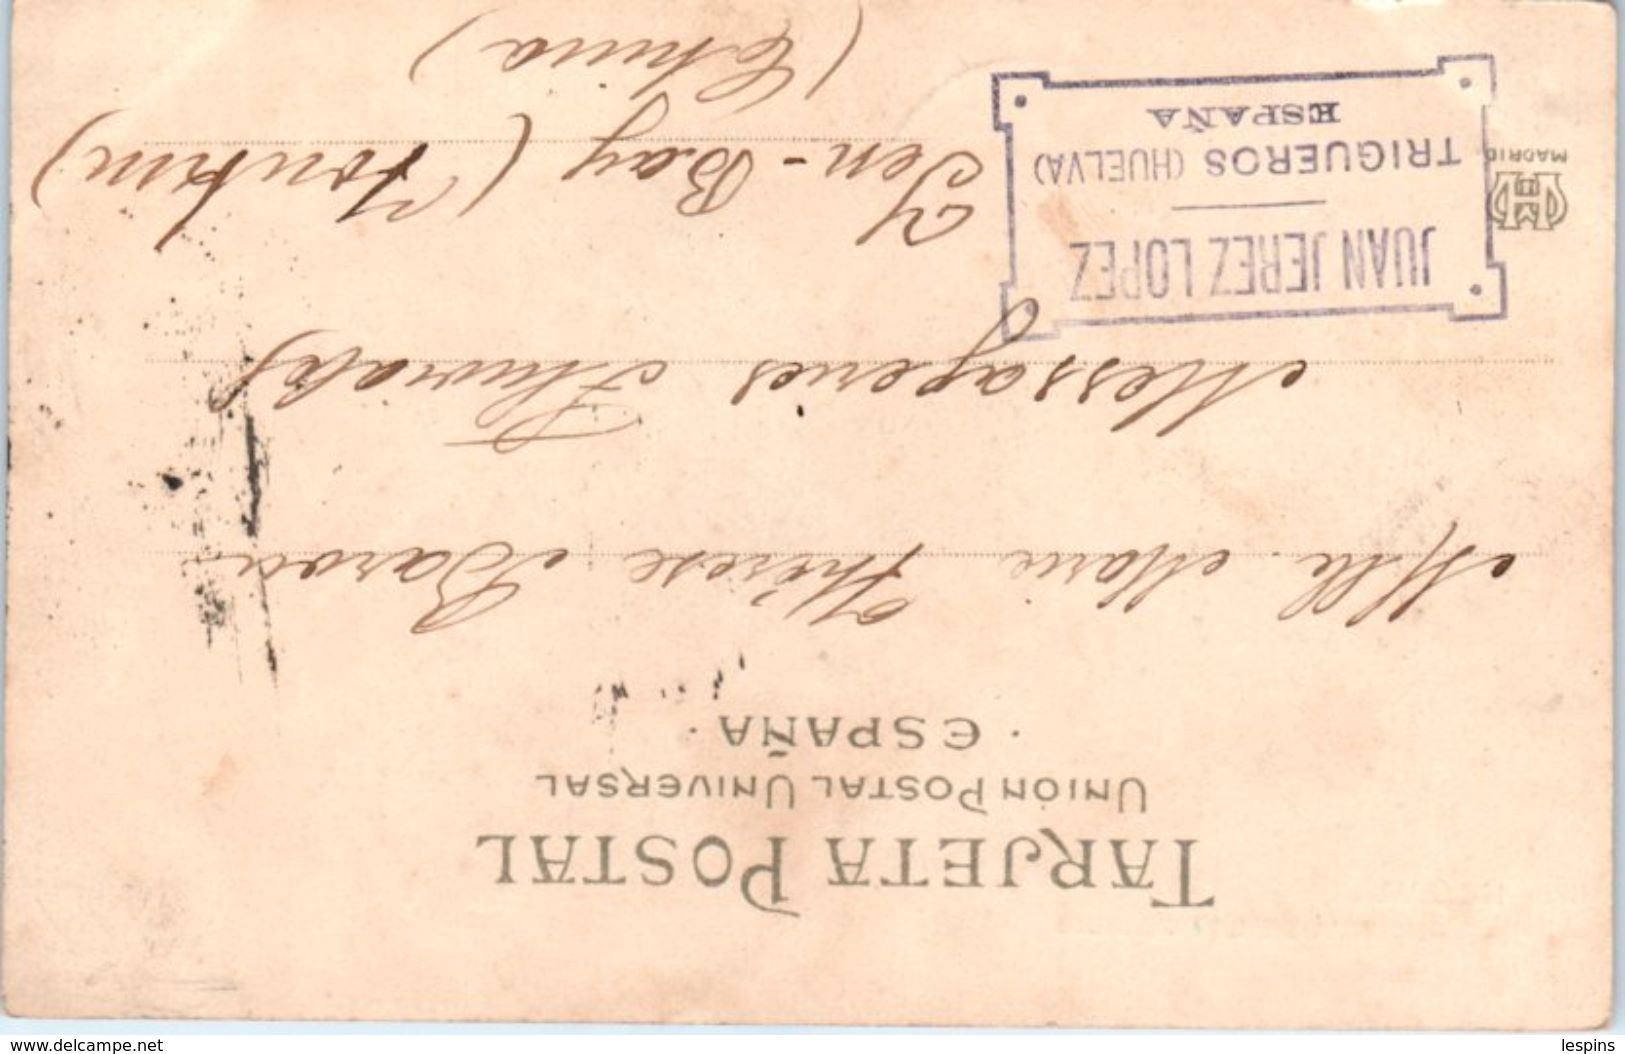 TARJETA POSTAL
UNIÓN POSTAL UNIVERSAL
· ESPAÑA ·
Mlle Marie Thérèse Baron
Messageries Fluviales
Yen-Bay (Tonkin)
(Chine)
JUAN JEREZ LOPEZ
TRIGUEROS (HUELVA)
ESPAÑA
MADRID
www.delcampe.net
lespins